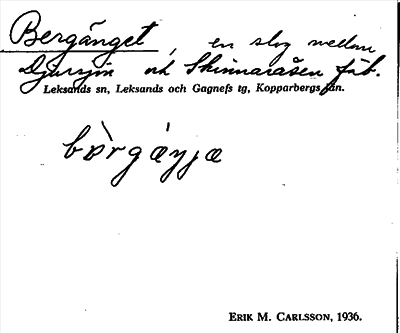 Bergänget, en slog mellan
Djursjön och Skinnaråsen fäb.
Leksands sn, Leksands och Gagnefs tg, Kopparbergs län.
bὸrgáŋjæ
ERIK M. CARLSSON, 1936.